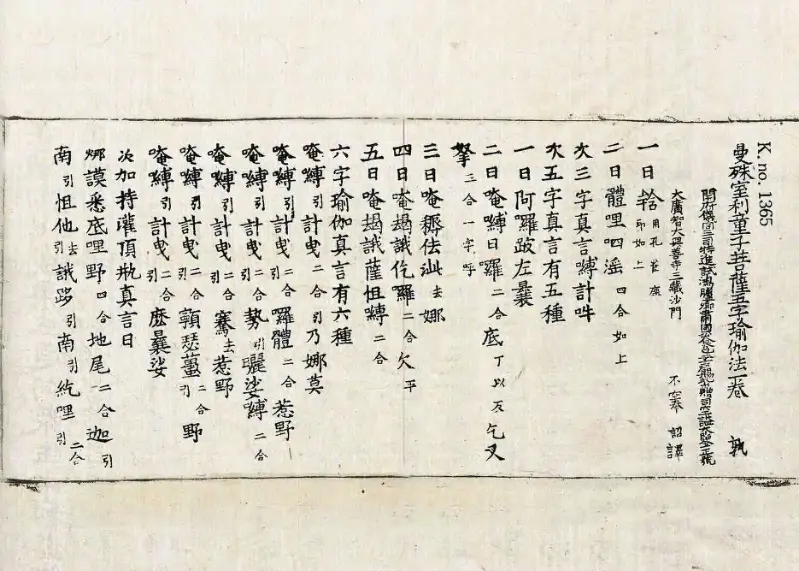 K. no. 1365
曼殊室利童子菩薩五字瑜伽法一卷　孰
開府儀同三司特進試鴻臚卿肅國公食邑三千戶賜紫贈司空謚大鑒正號
大廣智大興善寺三藏沙門　不空奉　詔譯
一曰 用孔雀座印如上
二曰體哩四淫四合如上
次三字真言嚩計吽
次五字真言有五種
一曰阿羅跛左曩
二曰唵嚩日羅二合底丁以反乞叉
拏三合一字呼
三曰唵耨佉泚去娜
四曰唵朅誐仡羅二合欠平
五曰唵朅誐薩怛嚩二合
六字瑜伽真言有六種
唵嚩引計曳二合引乃娜莫
唵嚩引計曳二合囉體二合惹野
唵嚩引計曳二合勢引曬娑嚩二合
唵嚩引計曳二合騫去惹野
唵嚩引計曳二合引顎瑟薑二合引野
唵嚩引計曳二合引麼曩娑
次加持灌頂瓶真言曰
娜謨悉底哩野四合地尾二合迦引
南引怛他去引誐跢引南引紇哩二合引